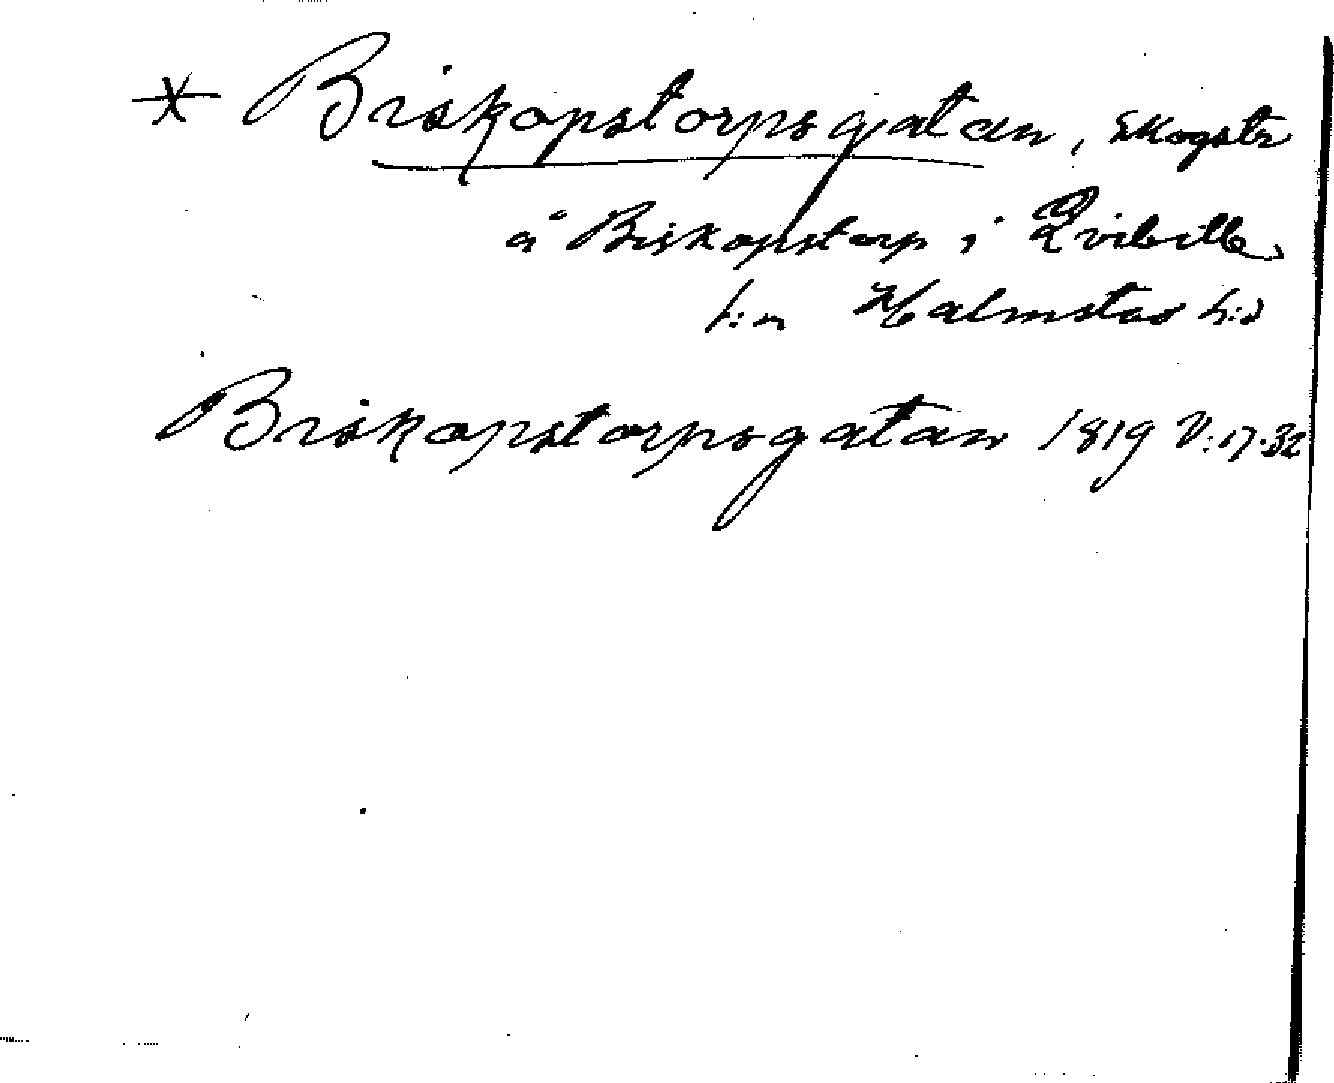 * Biskopstorpsgatan, Skogstr
å Biskopstorp i Qvibille
s:n Halmstad h:d
Biskopstorpsgatan 1819 V:17.32